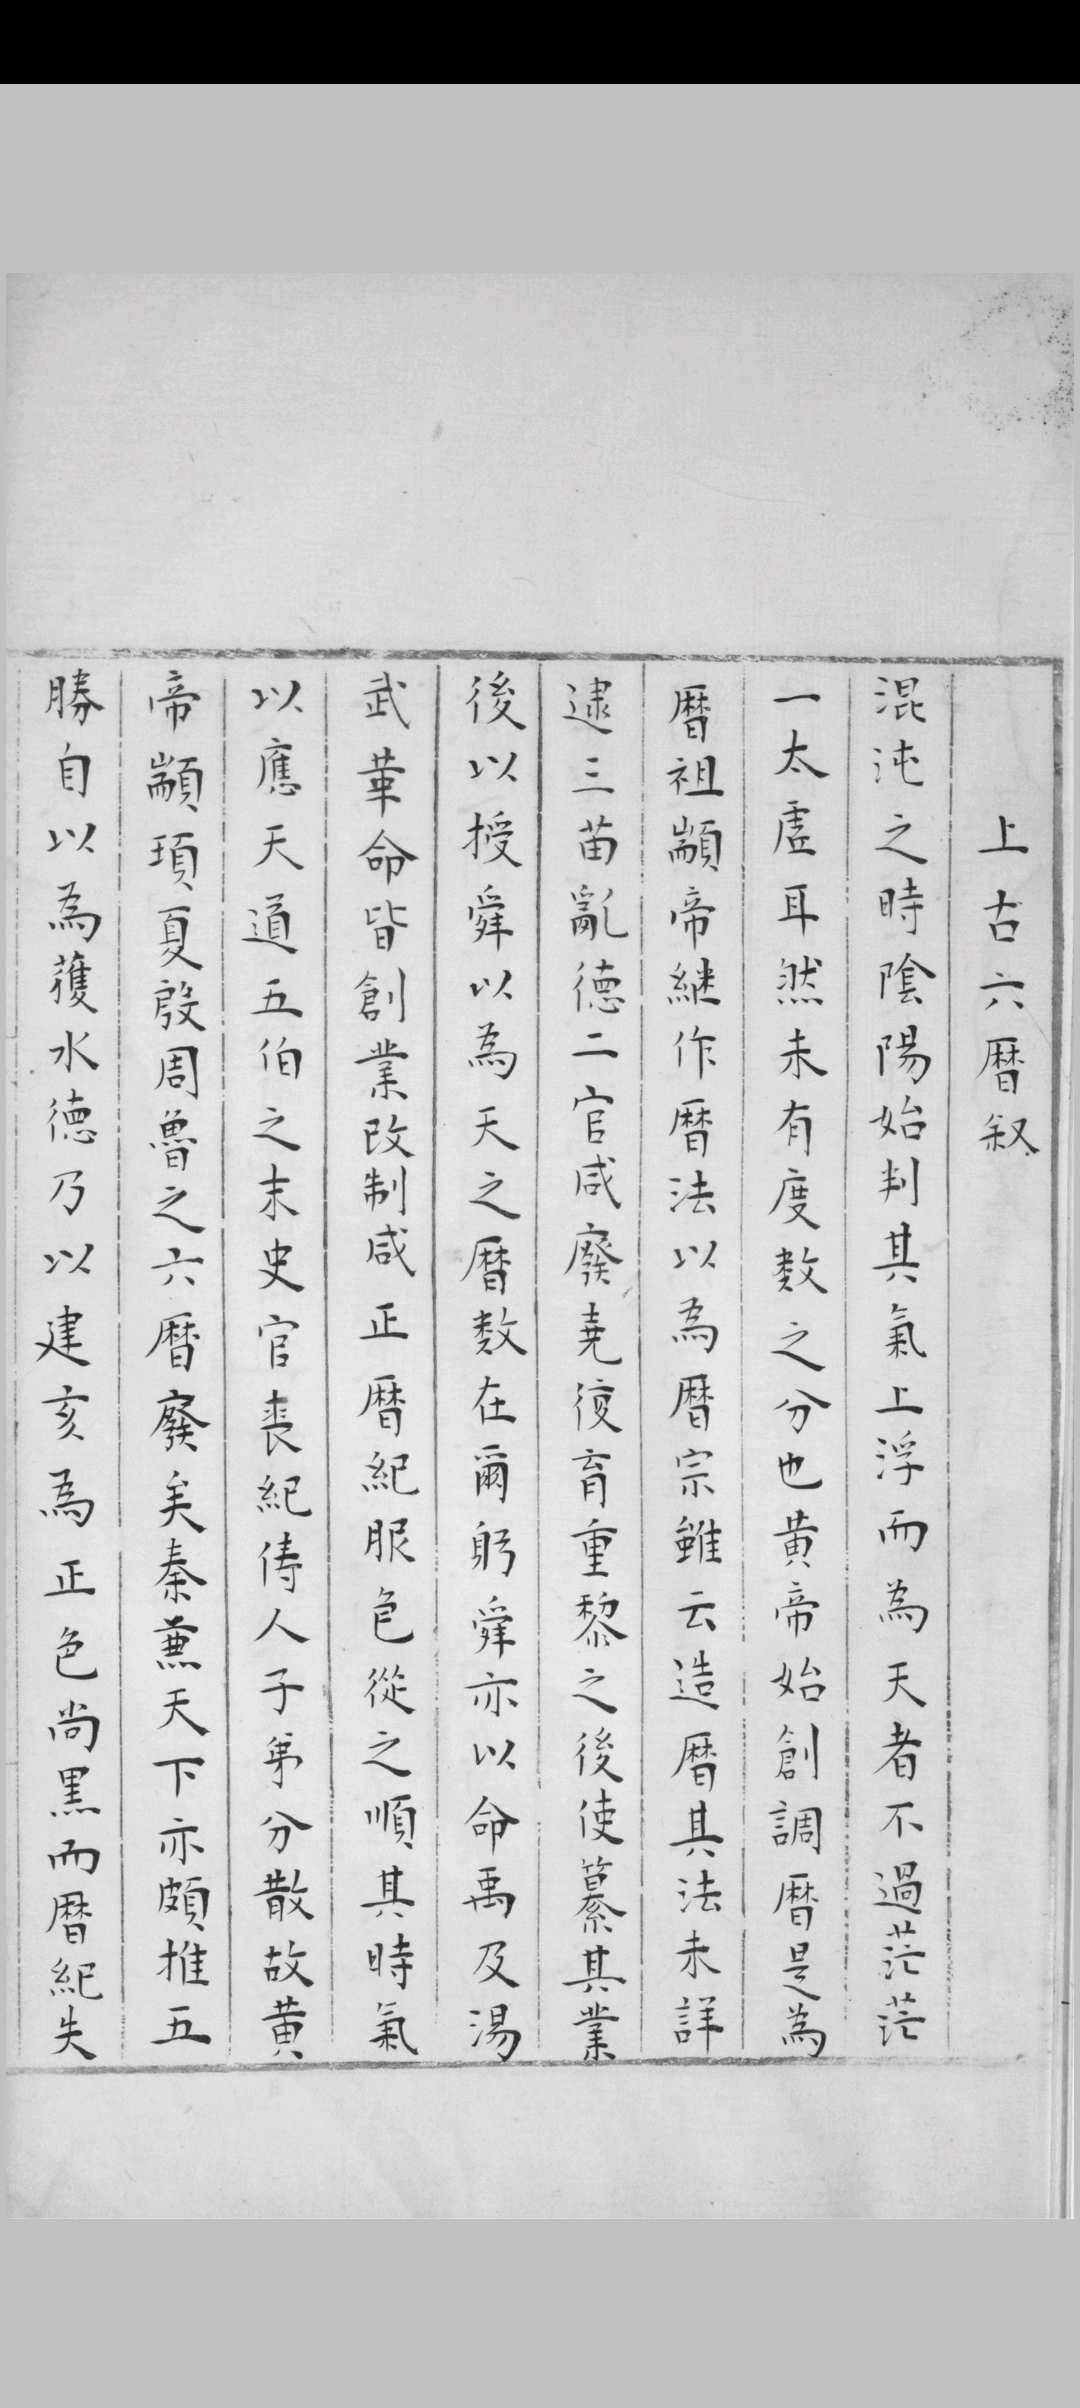 上古六暦叙
混沌之時陰陽始判其氣上浮而為天者不過茫茫
一太虛耳然未有度数之分也黄帝始創調暦是為
暦祖顓帝継作暦法以為暦宗雖云造暦其法未詳
逮三苗亂德二官咸廢堯復育重黎之後使纂其業
後以授舜以為天之暦数在爾躬舜亦以命禹及湯
武革命皆創業改制咸正暦紀服色從之順其時氣
以應天道五伯之末史官喪紀俦人子弟分散故黄
帝顓頊夏殷周魯之六暦廢矣秦兼天下亦頗推五
勝自以為獲水德乃以建亥為正色尚黒而暦紀失